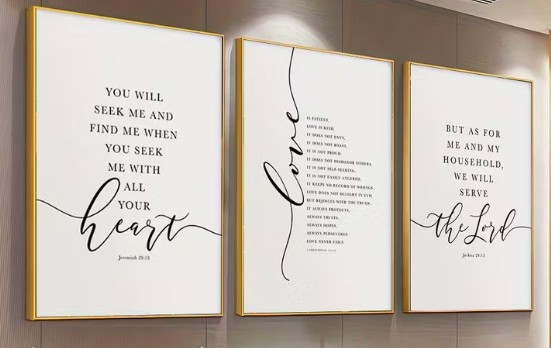 YOU WILL
SEEK ME AND
FIND ME WHEN
YOU SEEK
ME WITH
ALL
YOUR
heart
Jeremiah 29:13
love
IS PATIENT,
LOVE IS KIND.
IT DOES NOT ENVY,
IT DOES NOT BOAST,
IT IS NOT PROUD.
IT DOES NOT DISHONOR OTHERS,
IT IS NOT SELF-SEEKING,
IT IS NOT EASILY ANGERED,
IT KEEPS NO RECORD OF WRONGS.
LOVE DOES NOT DELIGHT IN EVIL
BUT REJOICES WITH THE TRUTH.
IT ALWAYS PROTECTS,
ALWAYS TRUSTS,
ALWAYS HOPES,
ALWAYS PERSEVERES.
LOVE NEVER FAILS
BUT AS FOR
ME AND MY
HOUSEHOLD,
WE WILL
SERVE
the Lord
Joshua 24:15